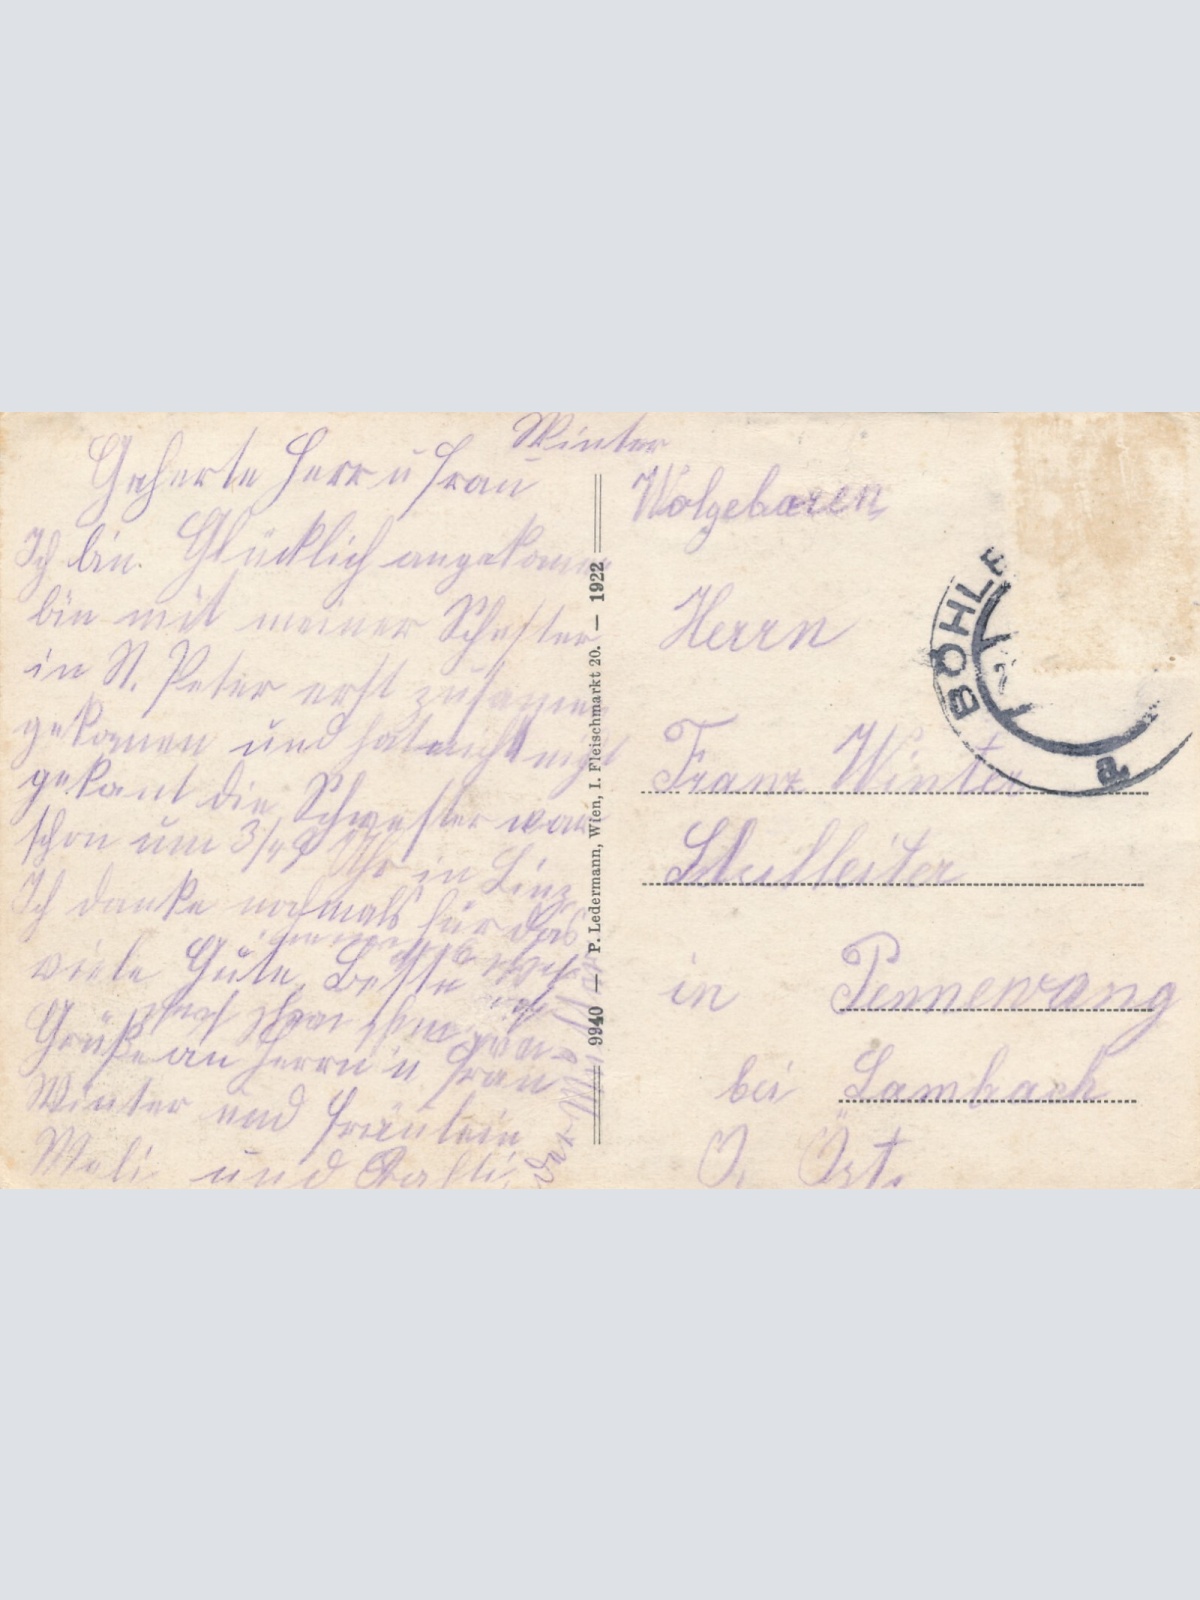 Geherte Herr u Frau Winter
Ich bin Glücklich angekomm
bin mit meiner Schester
in St. Peter erst zusamen
gekomen und hat mich nicht
gekant die Schwester war
schon um 3/4 Uhr in Linz
Ich danke nochmals für das
viele Gute, Beste
Grüße an Herrn u Frau
Winter und Fräulein
Weli und
9940 — P. Ledermann, Wien, I. Fleischmarkt 20. — 1922
Wolgebaren
Herrn
Franz Winter
Schulleiter
in Pennewang
bei Lambach
O. Öst.
BÖHLE
a